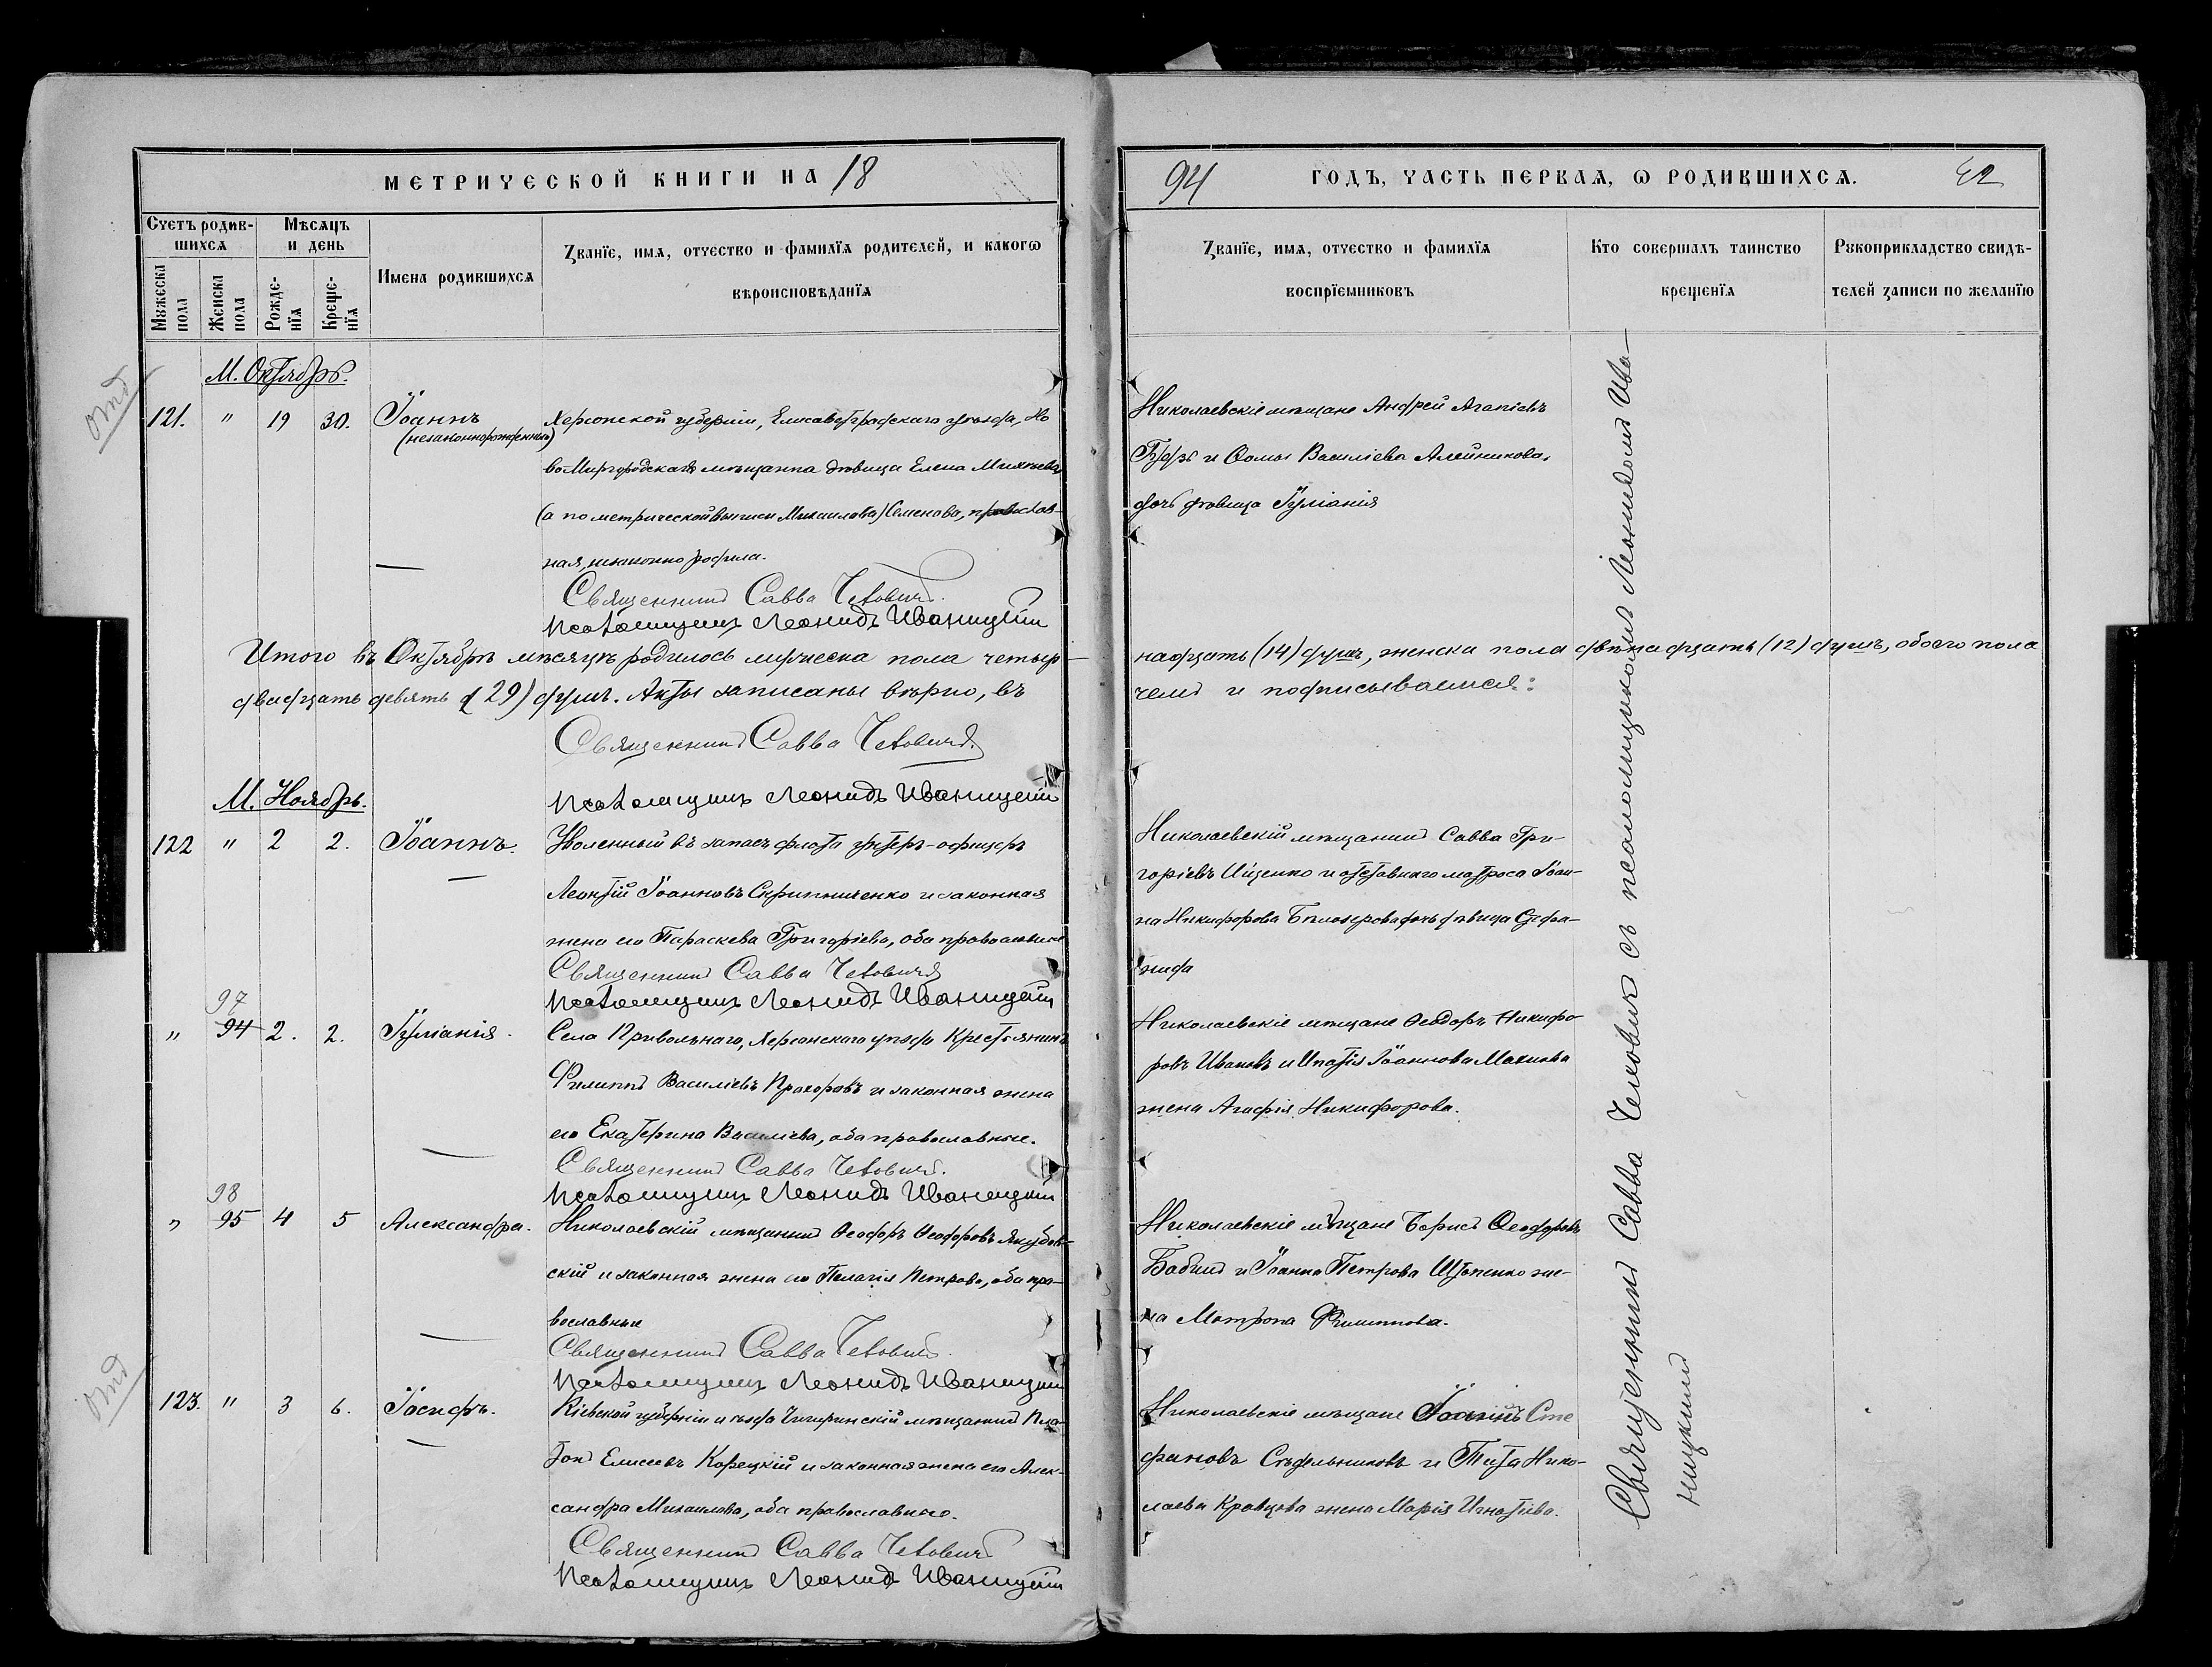 МЕТРИЧЕСКОЙ КНИГИ НА 18
94 ГОДЪ, ЧАСТЬ ПЕРВАѦ, Ѡ РОДИВШИХСѦ. 42
Счетъ родив-
шихсѧ
Мꙋжеска
пола
Женска
пола
Мѣсѧцъ
и день
Рожде-
нїѧ
Креще-
нїѧ
Имена родившихсѧ
Званїе, имѧ, отчество и фамилїѧ родителей, и какогѡ
вѣроисповѣданїѧ
Званїе, имѧ, отчество и фамилїѧ
воспрїемниковъ
Кто совершалъ таинство
крещенїѧ
Рꙋкоприкладство свидѣ-
телей записи по желанїю
М. Октябрь.
121. " 19 30. Іоаннъ
(незаконнорожденный)
Херсонской губерніи, Елисаветградскаго уѣзда, Но
воМиргородская мѣщанка дѣвица Елена Михеева
(а по метрической выписи Михаилова) Семенова, православ-
ная, незаконно родила.
Священникъ Савва Чехович.
Псаломщикъ Леонидъ Иваницкій
Николаевскіе мѣщане Андрей Агапіевъ
и Ѳомы Василіева Алейникова,
дочь дѣвица Іуліанія
Итого въ Октябрѣ мѣсяцѣ родилось мужеска пола четыр-
надцать (14) душъ, женска пола двѣнадцать (12) душъ, обоего пола
двадцать девять (29) душъ. Акты записаны вѣрно, въ
чемъ и подписываемся:
Священникъ Савва Чеховичъ.
Псаломщикъ Леонидъ Иваницкій
М. Ноябрь.
122 " 2 2. Іоаннъ.
Уволенный въ запасъ флота унтеръ-офицеръ
Леонтій Іоанновъ Скрипниченко и законная
жена его Параскева Григоріева, оба православные
Священникъ Савва Чеховичъ
Псаломщикъ Леонидъ Иваницкій
Николаевскій мѣщанинъ Савва Гри-
горіевъ Ищенко и отставного матроса Іоан-
на Никифорова Бѣлозерова дочь дѣвица Степа-
нида
97
" 94 2. 2. Іуліанія.
Села Привольнаго, Херсонскаго уѣзда крестьянинъ
Филиппъ Василіевъ Прохоровъ и законная жена
его Екатерина Василіева, оба православные.
Священникъ Савва Чеховичъ.
Псаломщикъ Леонидъ Иваницкій
Николаевскіе мѣщане Ѳеодоръ Никифо-
ровъ Ивановъ и Игнатія Іоаннова Махнова
жена Агафія Никифорова.
98
" 95 4 5 Александра.
Николаевскій мѣщанинъ Ѳеодоръ Ѳеодоровъ Якубов-
скій и законная жена его Пелагія Петрова, оба пра-
вославные
Священникъ Савва Чеховичъ.
Псаломщикъ Леонидъ Иваницкій
Николаевскіе мѣщане Борисъ Ѳеодоровъ
Бабичъ и Іоанна Петрова же-
на Матрона Филиппова.
123. " 3 6. Іосифъ.
Кіевской губерніи и уѣзда Чигиринскій мѣщанинъ Пла-
тонъ Елисеевъ Корецкій и законная жена его Алек-
сандра Михаилова, оба православные.
Священникъ Савва Чеховичъ
Псаломщикъ Леонидъ Иваницкій
Николаевскіе мѣщане Іоаннъ Сте
фановъ Сѣдельниковъ и Тита Нико-
лаева Кравцова жена Марія Игнатіева.
Священникъ Савва Чеховичъ съ псаломщикомъ Леонидомъ Ива-
ницкимъ